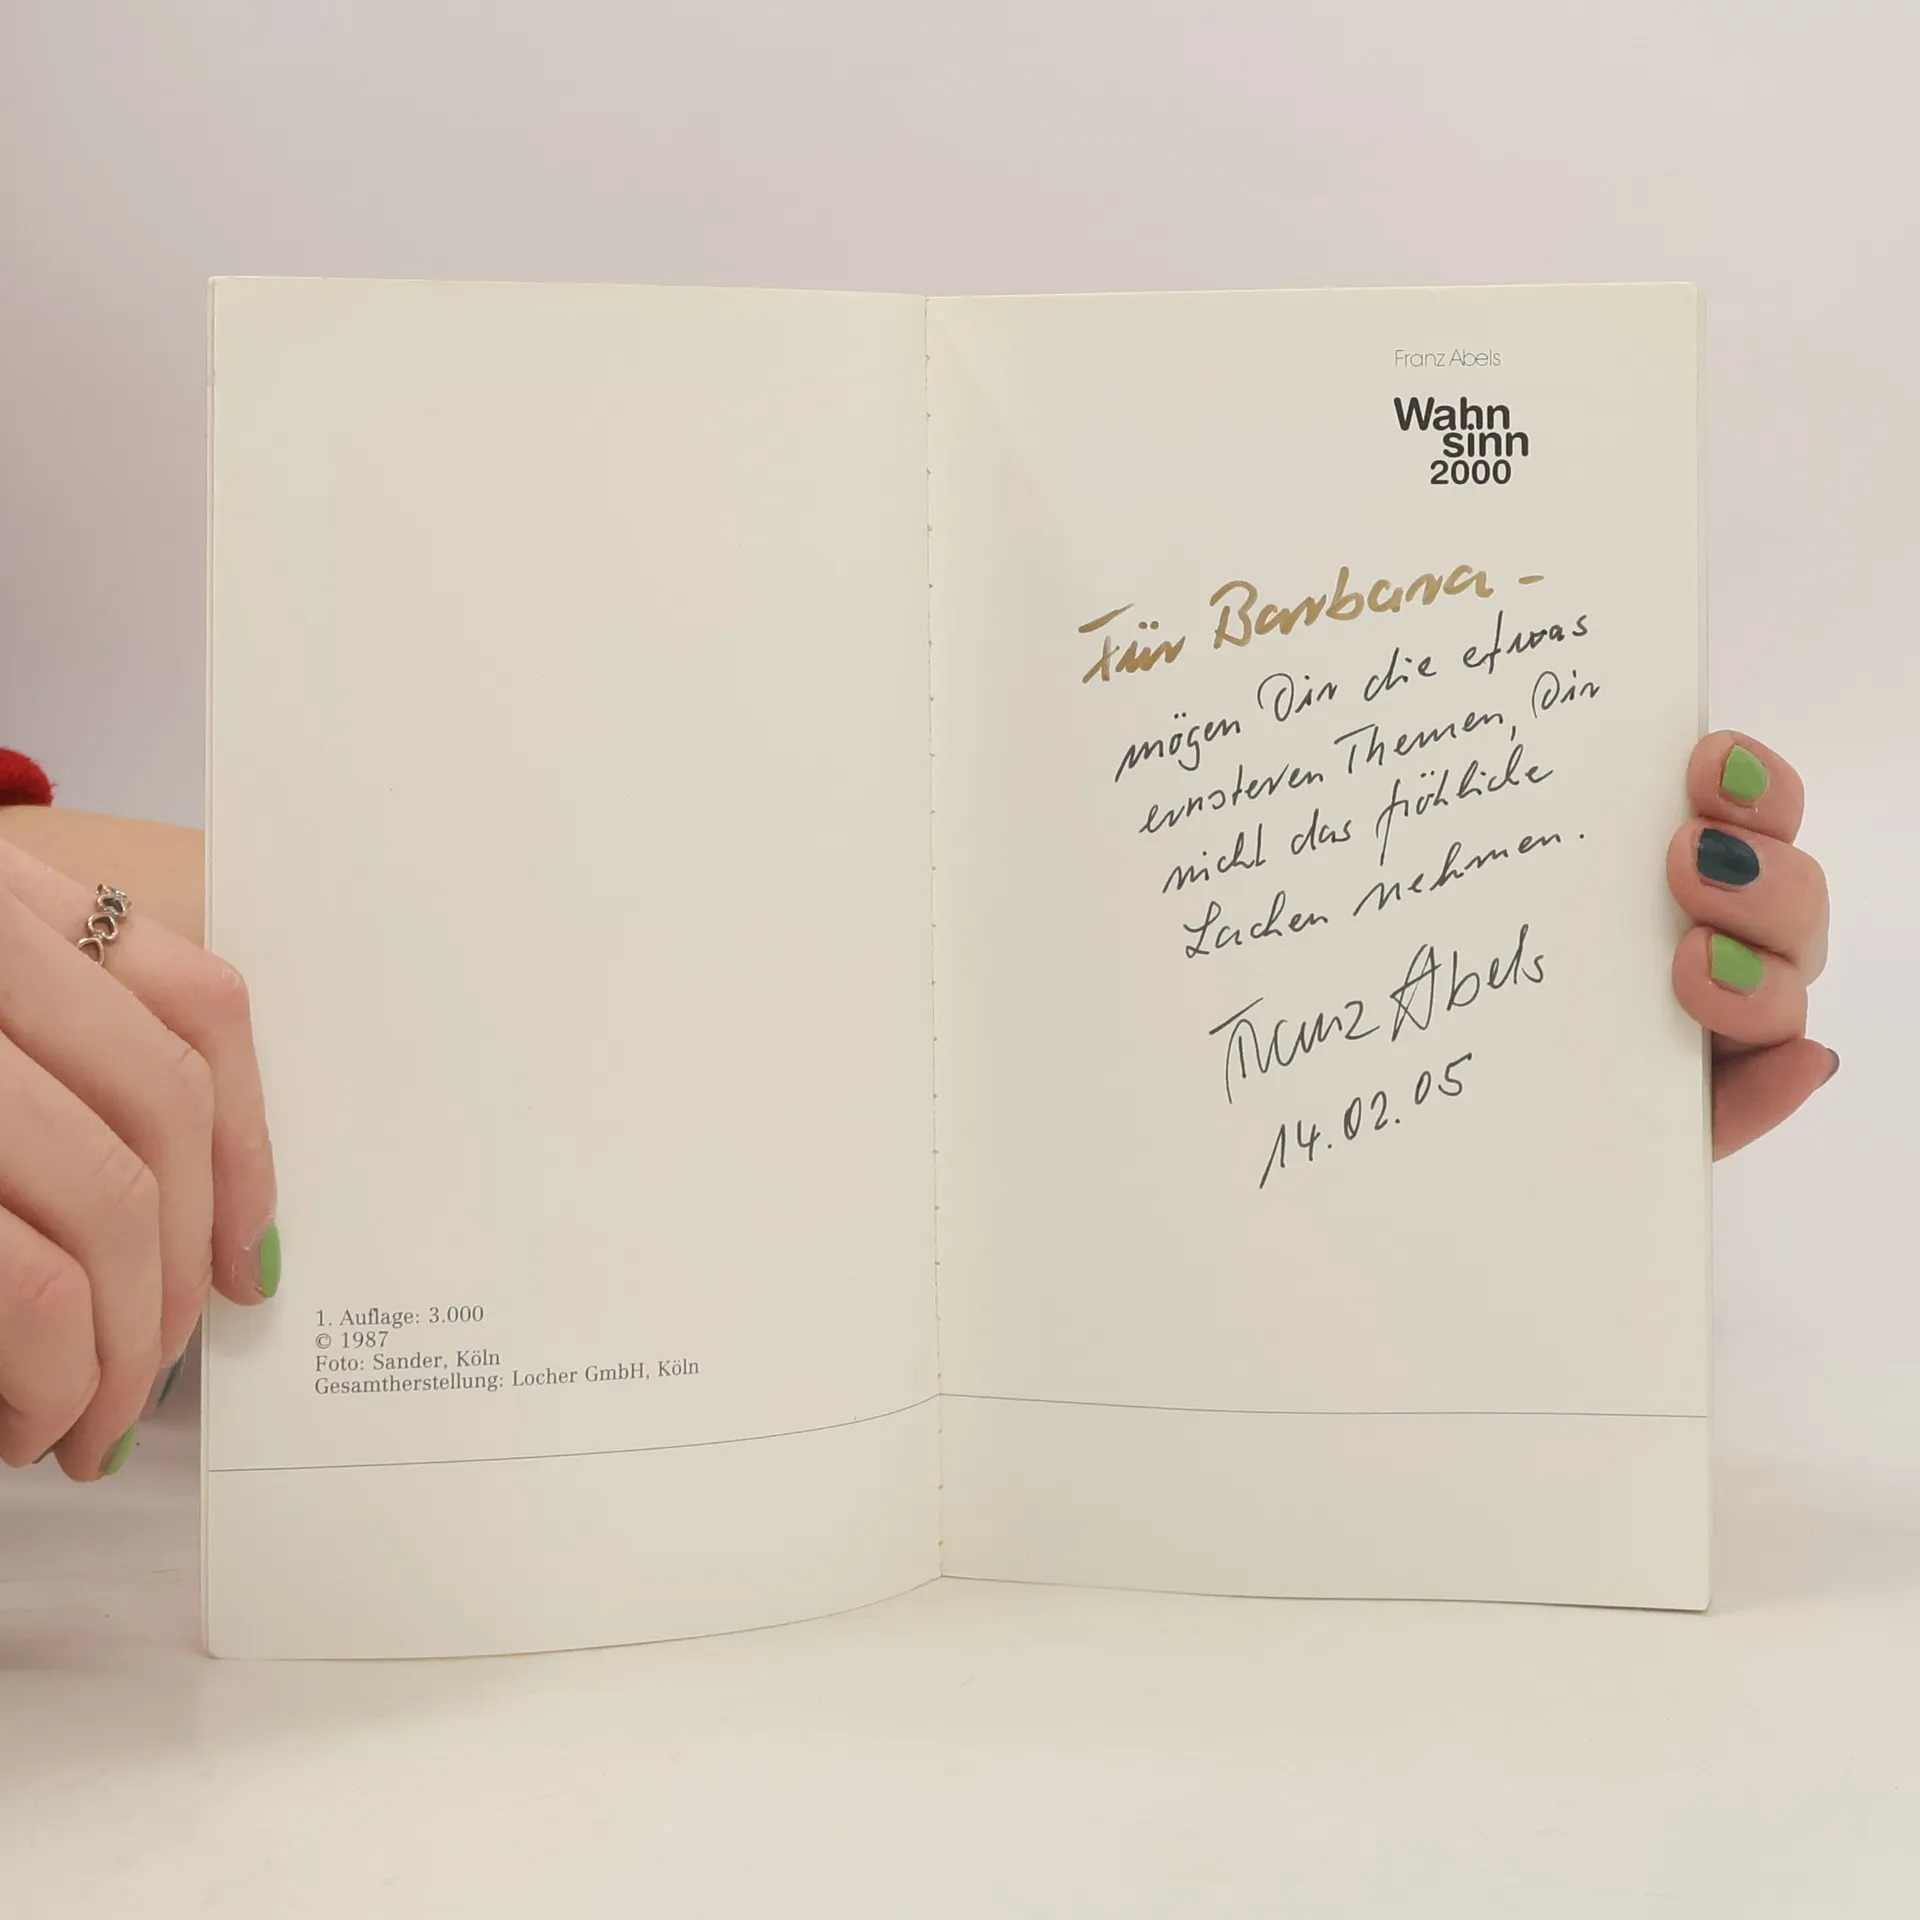 1. Auflage: 3.000
© 1987
Foto: Sander, Köln
Gesamtherstellung: Locher GmbH, Köln
Franz Abels
Wahn
sinn
2000
Für Barbara -
mögen Dir die etwas
ernsteren Themen, Dir
nicht das fröhliche
Lachen nehmen.
Franz Abels
14.02.05